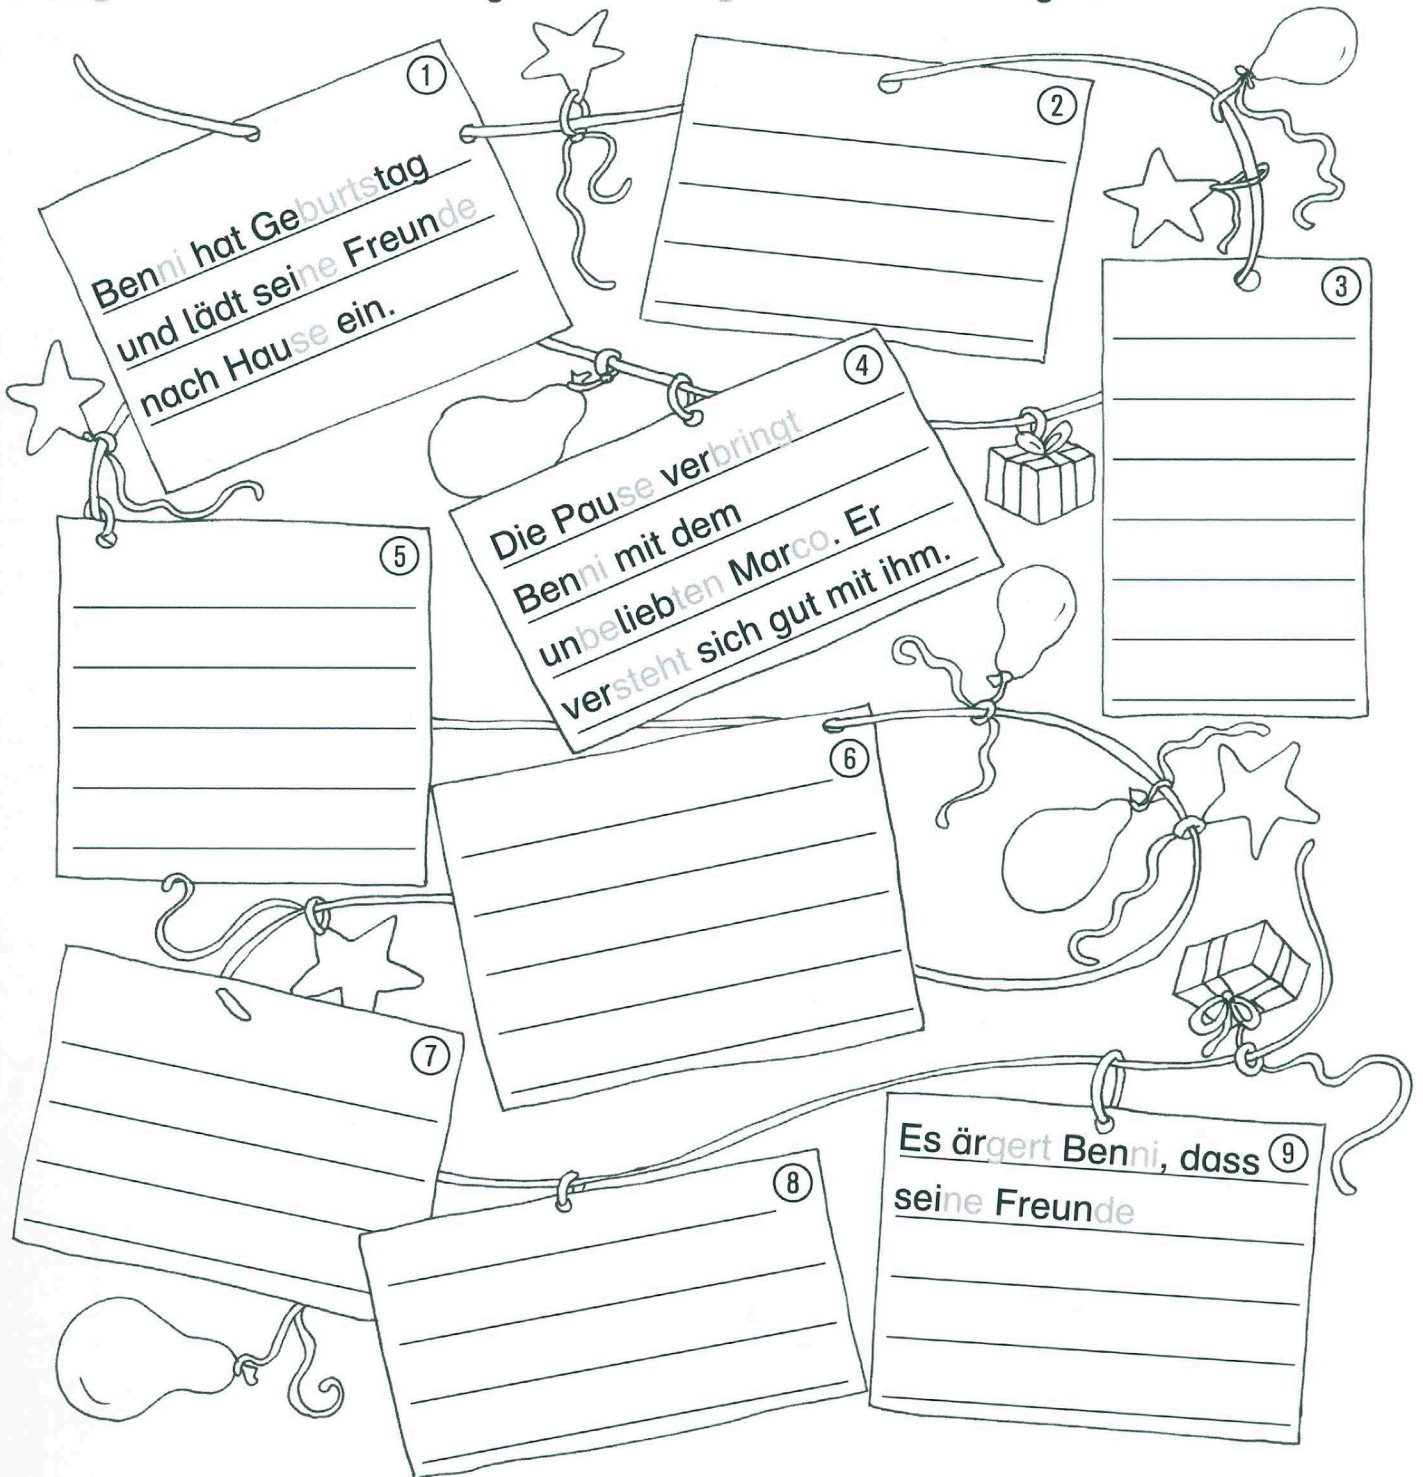 ①
Benni hat Geburtstag
und lädt seine Freunde
nach Hause ein.
②
③
④
Die Pause verbringt
Benni mit dem
unbeliebten Marco. Er
versteht sich gut mit ihm.
⑤
⑥
⑦
⑧
Es ärgert Benni, dass ⑨
seine Freunde